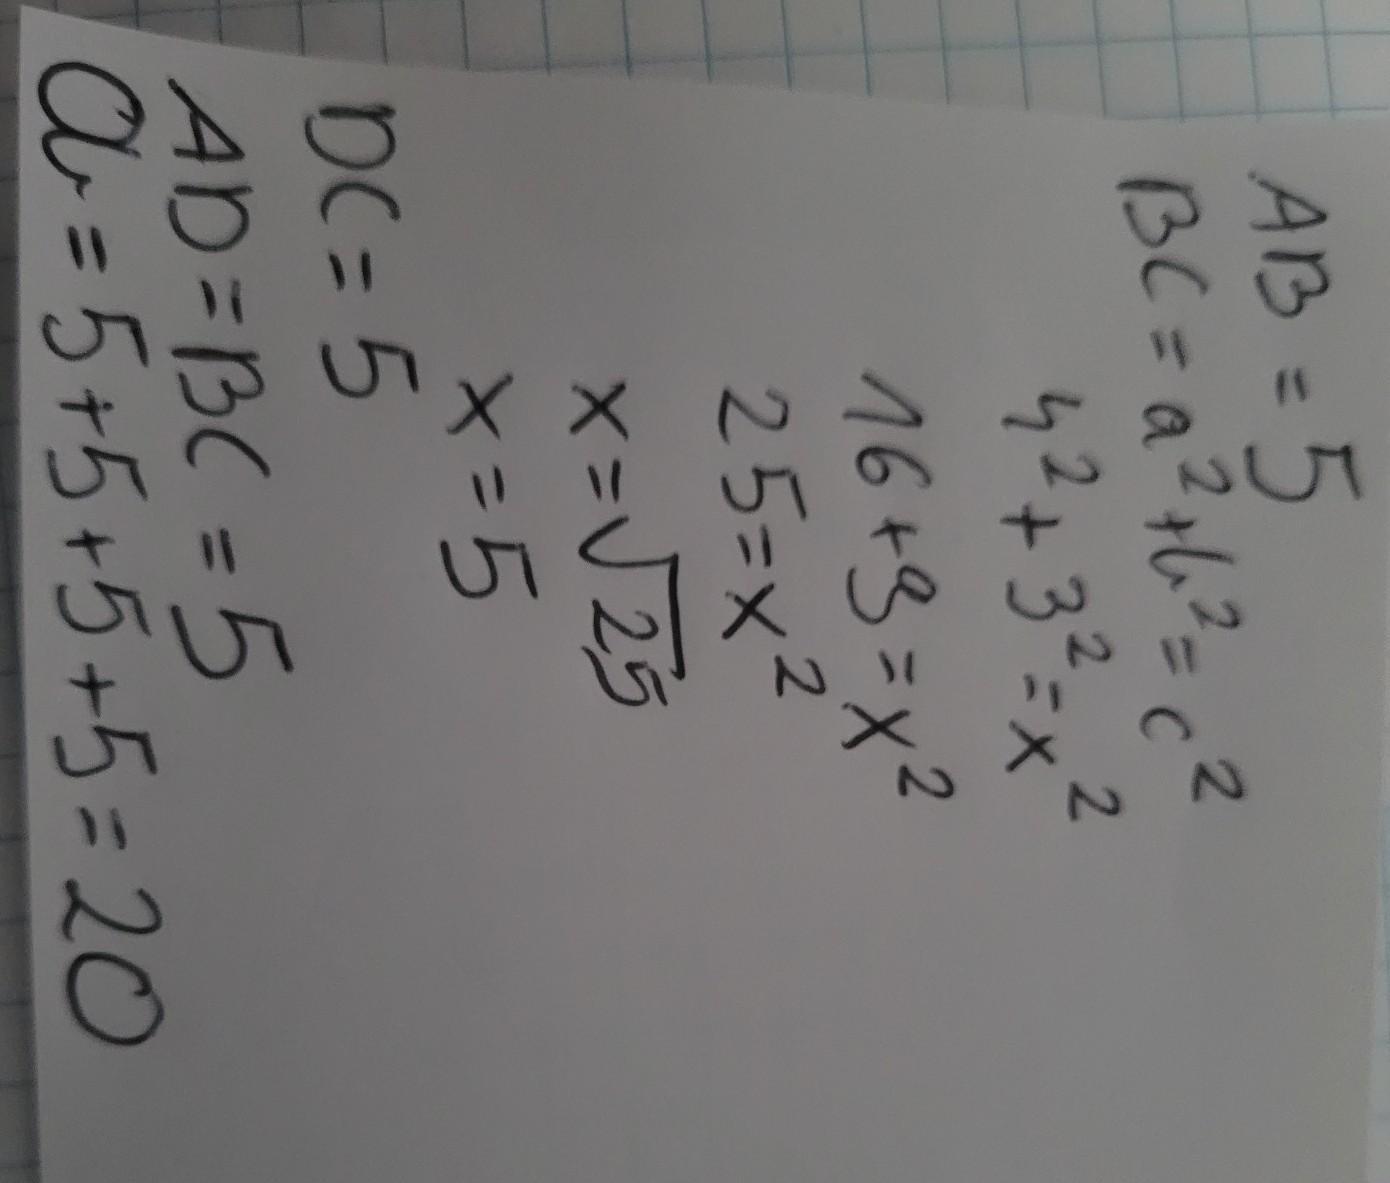 AB = 5
BC = a² + b² = c²
4² + 3² = x²
16 + 9 = x²
25 = x²
x = √25
x = 5
DC = 5
AD = BC = 5
a = 5 + 5 + 5 + 5 = 20